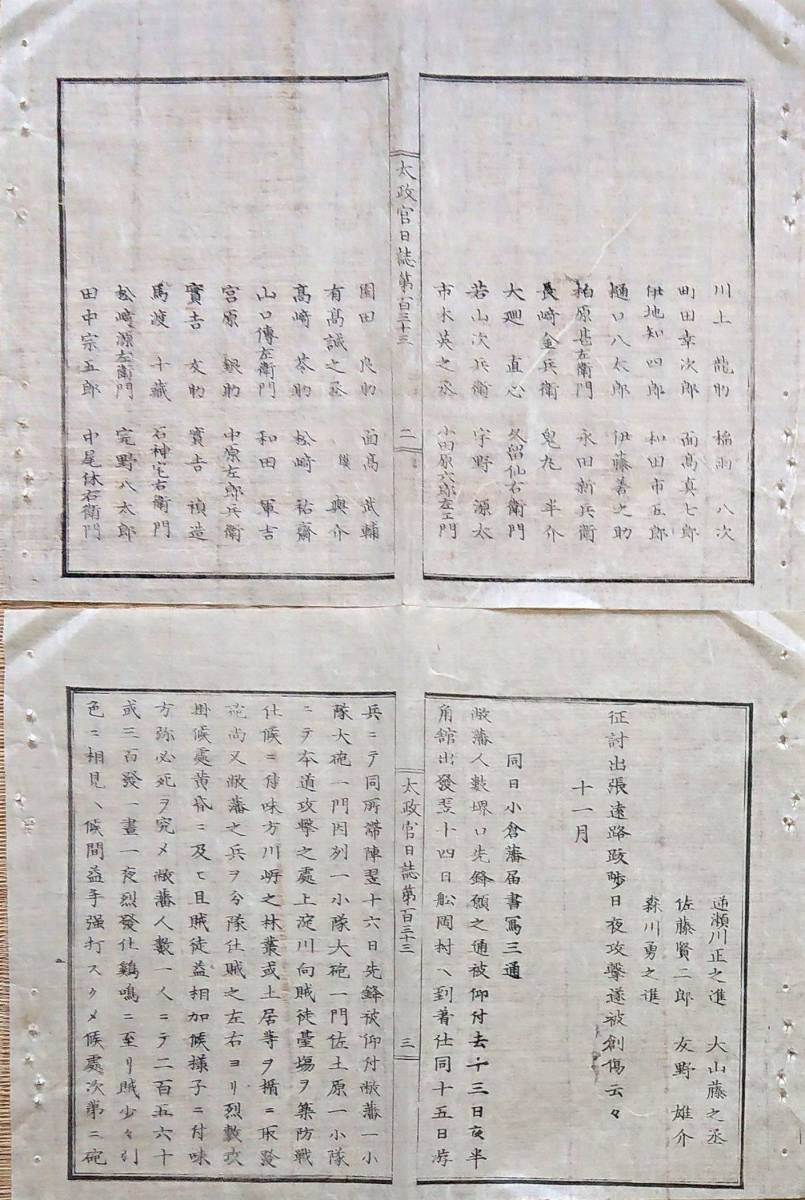 川上龍助 楠田八次
町田幸次郎 面髙真七郎
伊地知四郎 和田市五郎
樋口八太郎 伊藤善之助
柏原甚左衛門 永田新兵衛
長﨑金兵衛 鬼丸半介
大廻直心 久留仙右衛門
若山次兵衛 宇野源太
市木英之丞 小田原六郎左エ門
太政官日誌第百三十三 二
園田良助 面髙武輔
有髙誠之丞 興介
髙﨑恭助 松﨑祐齋
山口傳左衛門 和田軍吉
宮原銀助 中原左郎兵衛
寳吉友助 寳吉禎造
馬渡十藏 石神宅右衛門
松﨑源左衛門 宍野八太郎
田中宗五郎 中尾休右衛門
瀬川正之進 大山藤之丞
佐藤賢二郎 友野雄介
森川勇之進
征討出張遠路跋渉日夜攻撃遂被創傷云々
十一月
同日小倉藩届書冩三通
敝藩人數堺口先鋒願之通被仰付去十三日夜半
角館出發翌十四日舩岡村ヘ到着仕同十五日游
太政官日誌第百三十三 三
兵ニテ同所滞陣翌十六日先鋒被仰付敝藩一小
隊大砲一門因列一小隊大砲一門佐土原一小隊
ニテ本道攻撃之處上淀川向賊徒臺塲ヲ築防戦
仕候ニ付味方川岍之林叢或土居等ヲ楯ニ取發
砲尚又敝藩之兵ヲ分隊仕賊之左右ヨリ烈敷攻
掛候處黄昏ニ及ヒ且賊徒益相加候樣子ニ付味
方弥必死ヲ究メ敝藩人數一人ニテ二百五六十
或三百發一晝一夜烈發仕鷄鳴ニ至リ賊少々引
色ニ相見ヘ候間益手强打スクメ候處次第ニ砲